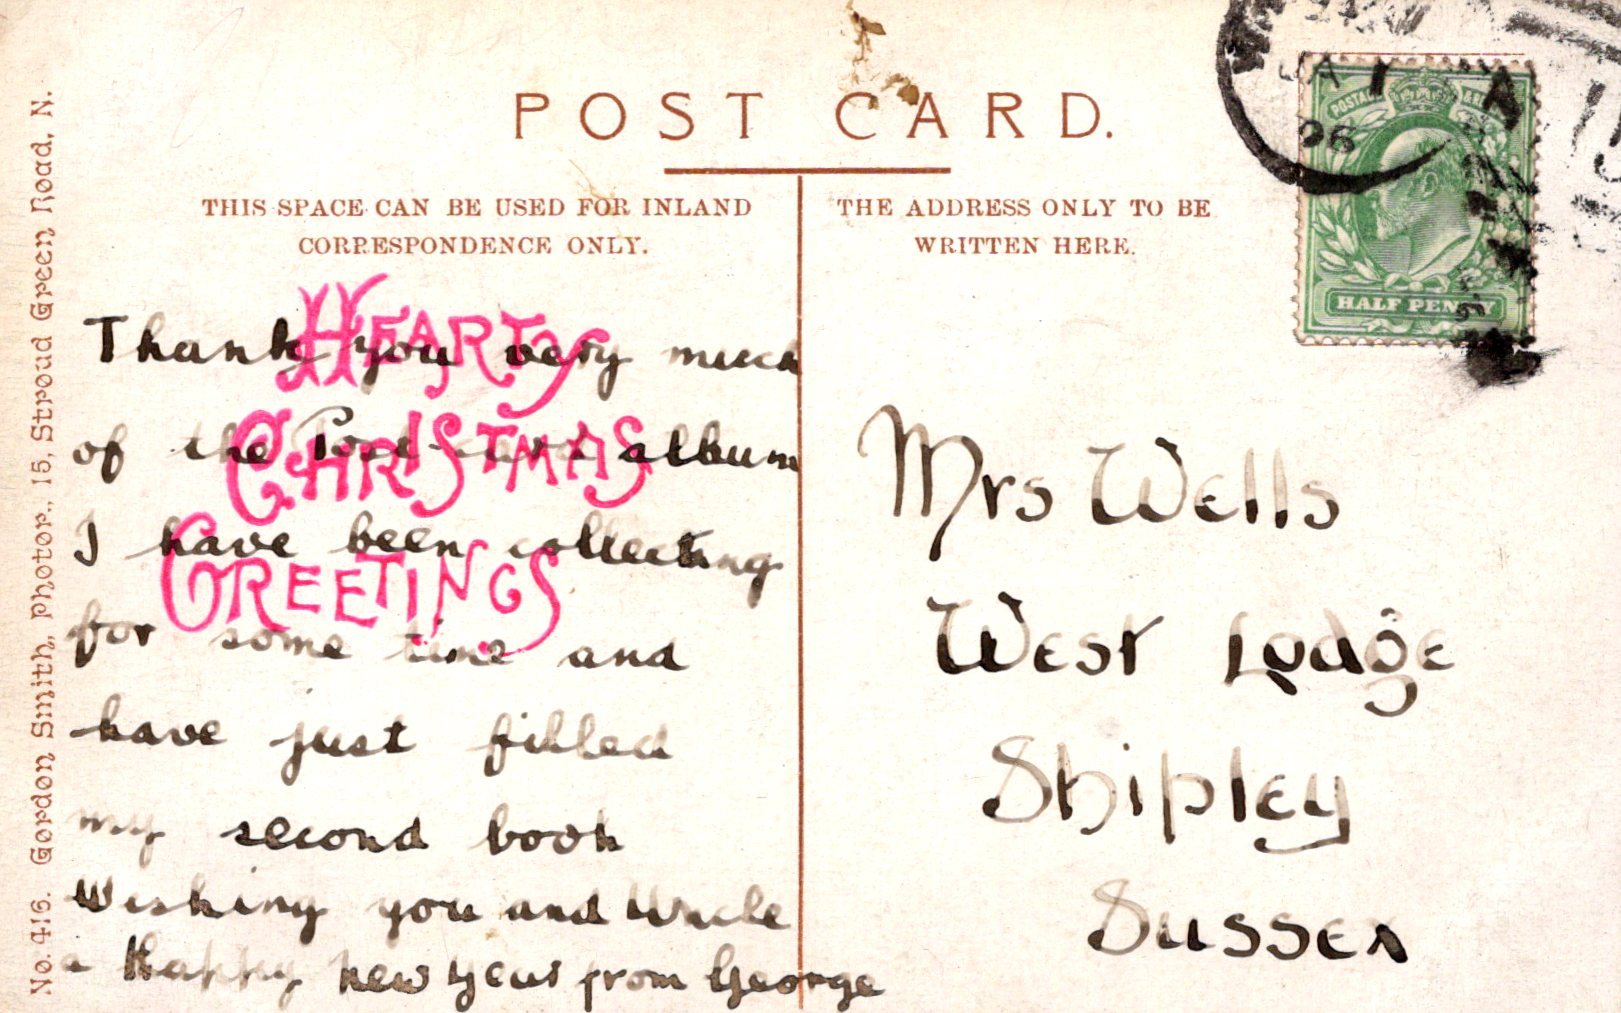 POST CARD.
THIS SPACE CAN BE USED FOR INLAND
CORRESPONDENCE ONLY.
THE ADDRESS ONLY TO BE
WRITTEN HERE.
POSTAGE
HALF PENNY
06
HEARTY
CHRISTMAS
GREETINGS
Thank you very much
of the Post-card album
I have been collecting
for some time and
have just filled
my second book
Wishing you and Uncle
a Happy new year from George
Mrs Wells
West Lodge
Shipley
Sussex
No. 416. Gordon Smith, Photor., 15, Stroud Green Road, N.